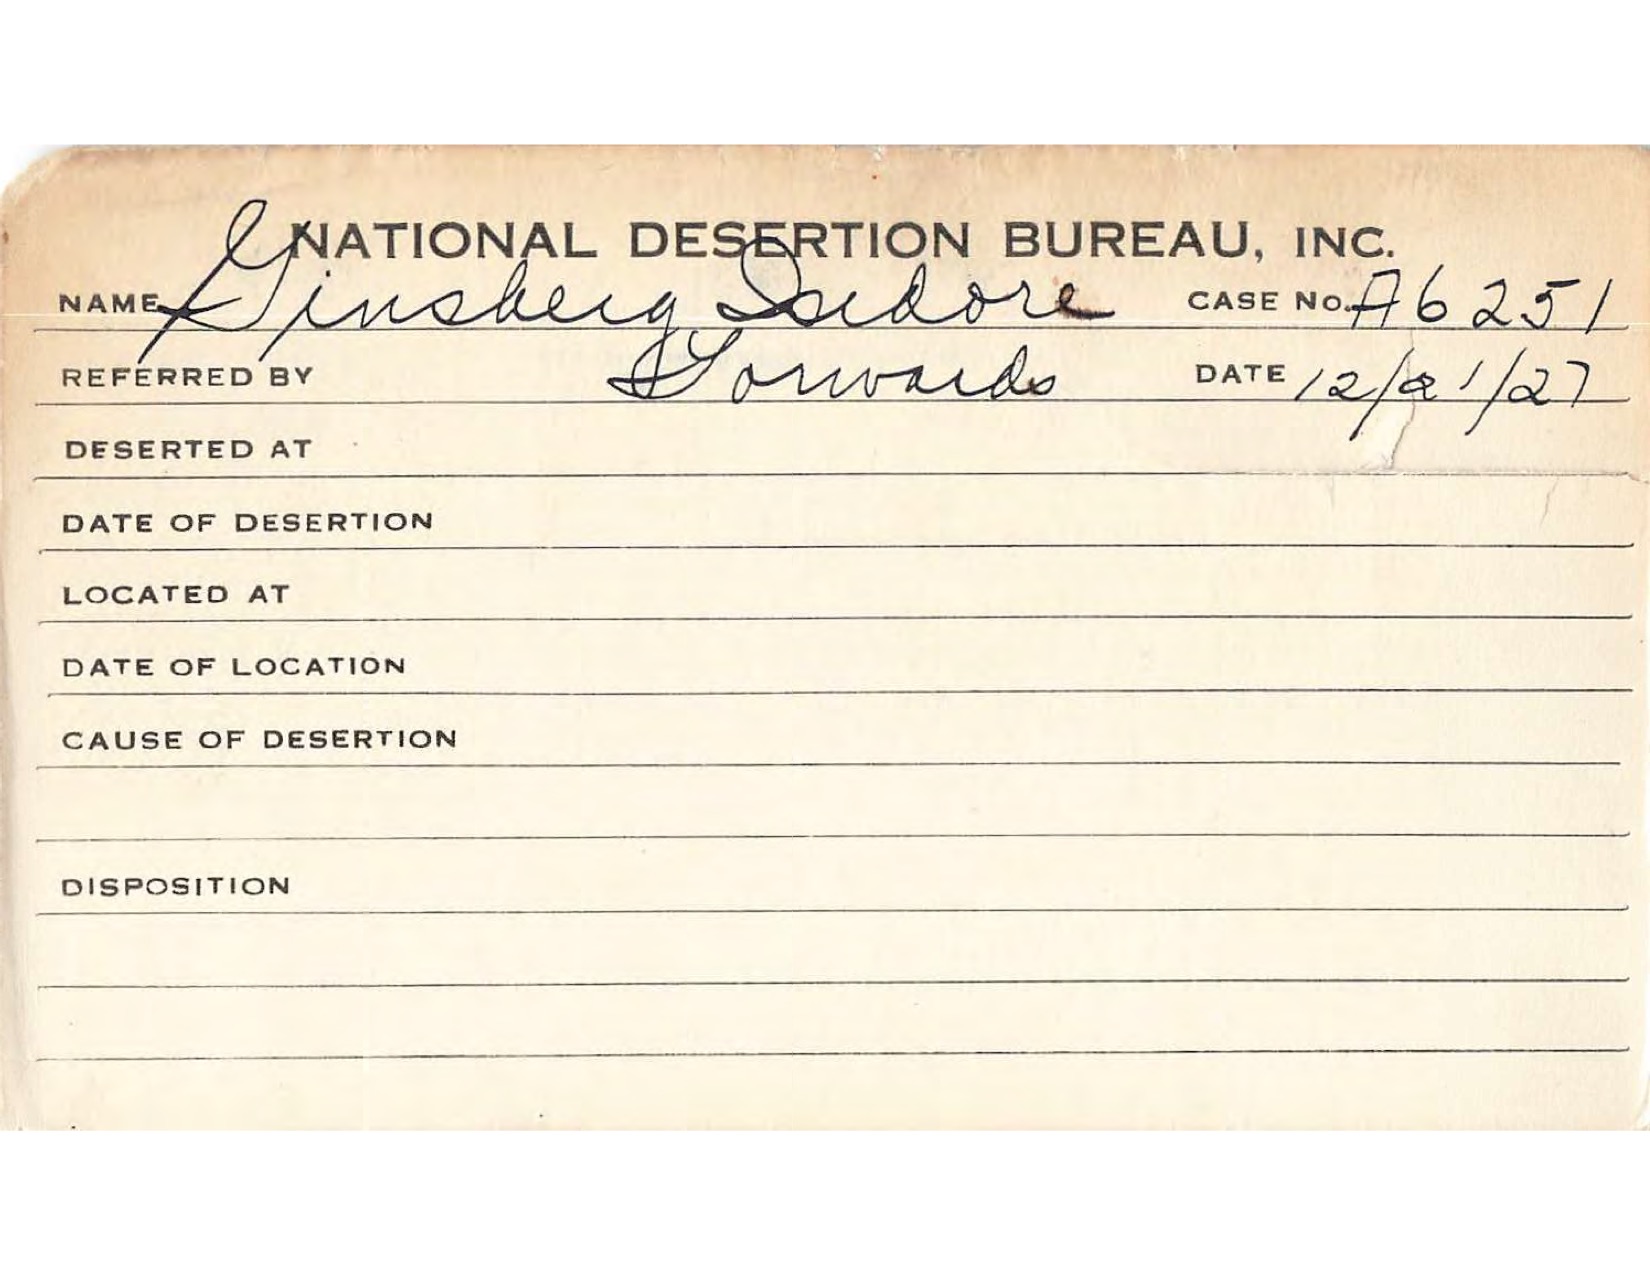 NATIONAL DESERTION BUREAU, INC.
NAME Ginsberg, Isidore CASE No. A6251
REFERRED BY Forwards DATE 12/21/27
DESERTED AT
DATE OF DESERTION
LOCATED AT
DATE OF LOCATION
CAUSE OF DESERTION
DISPOSITION